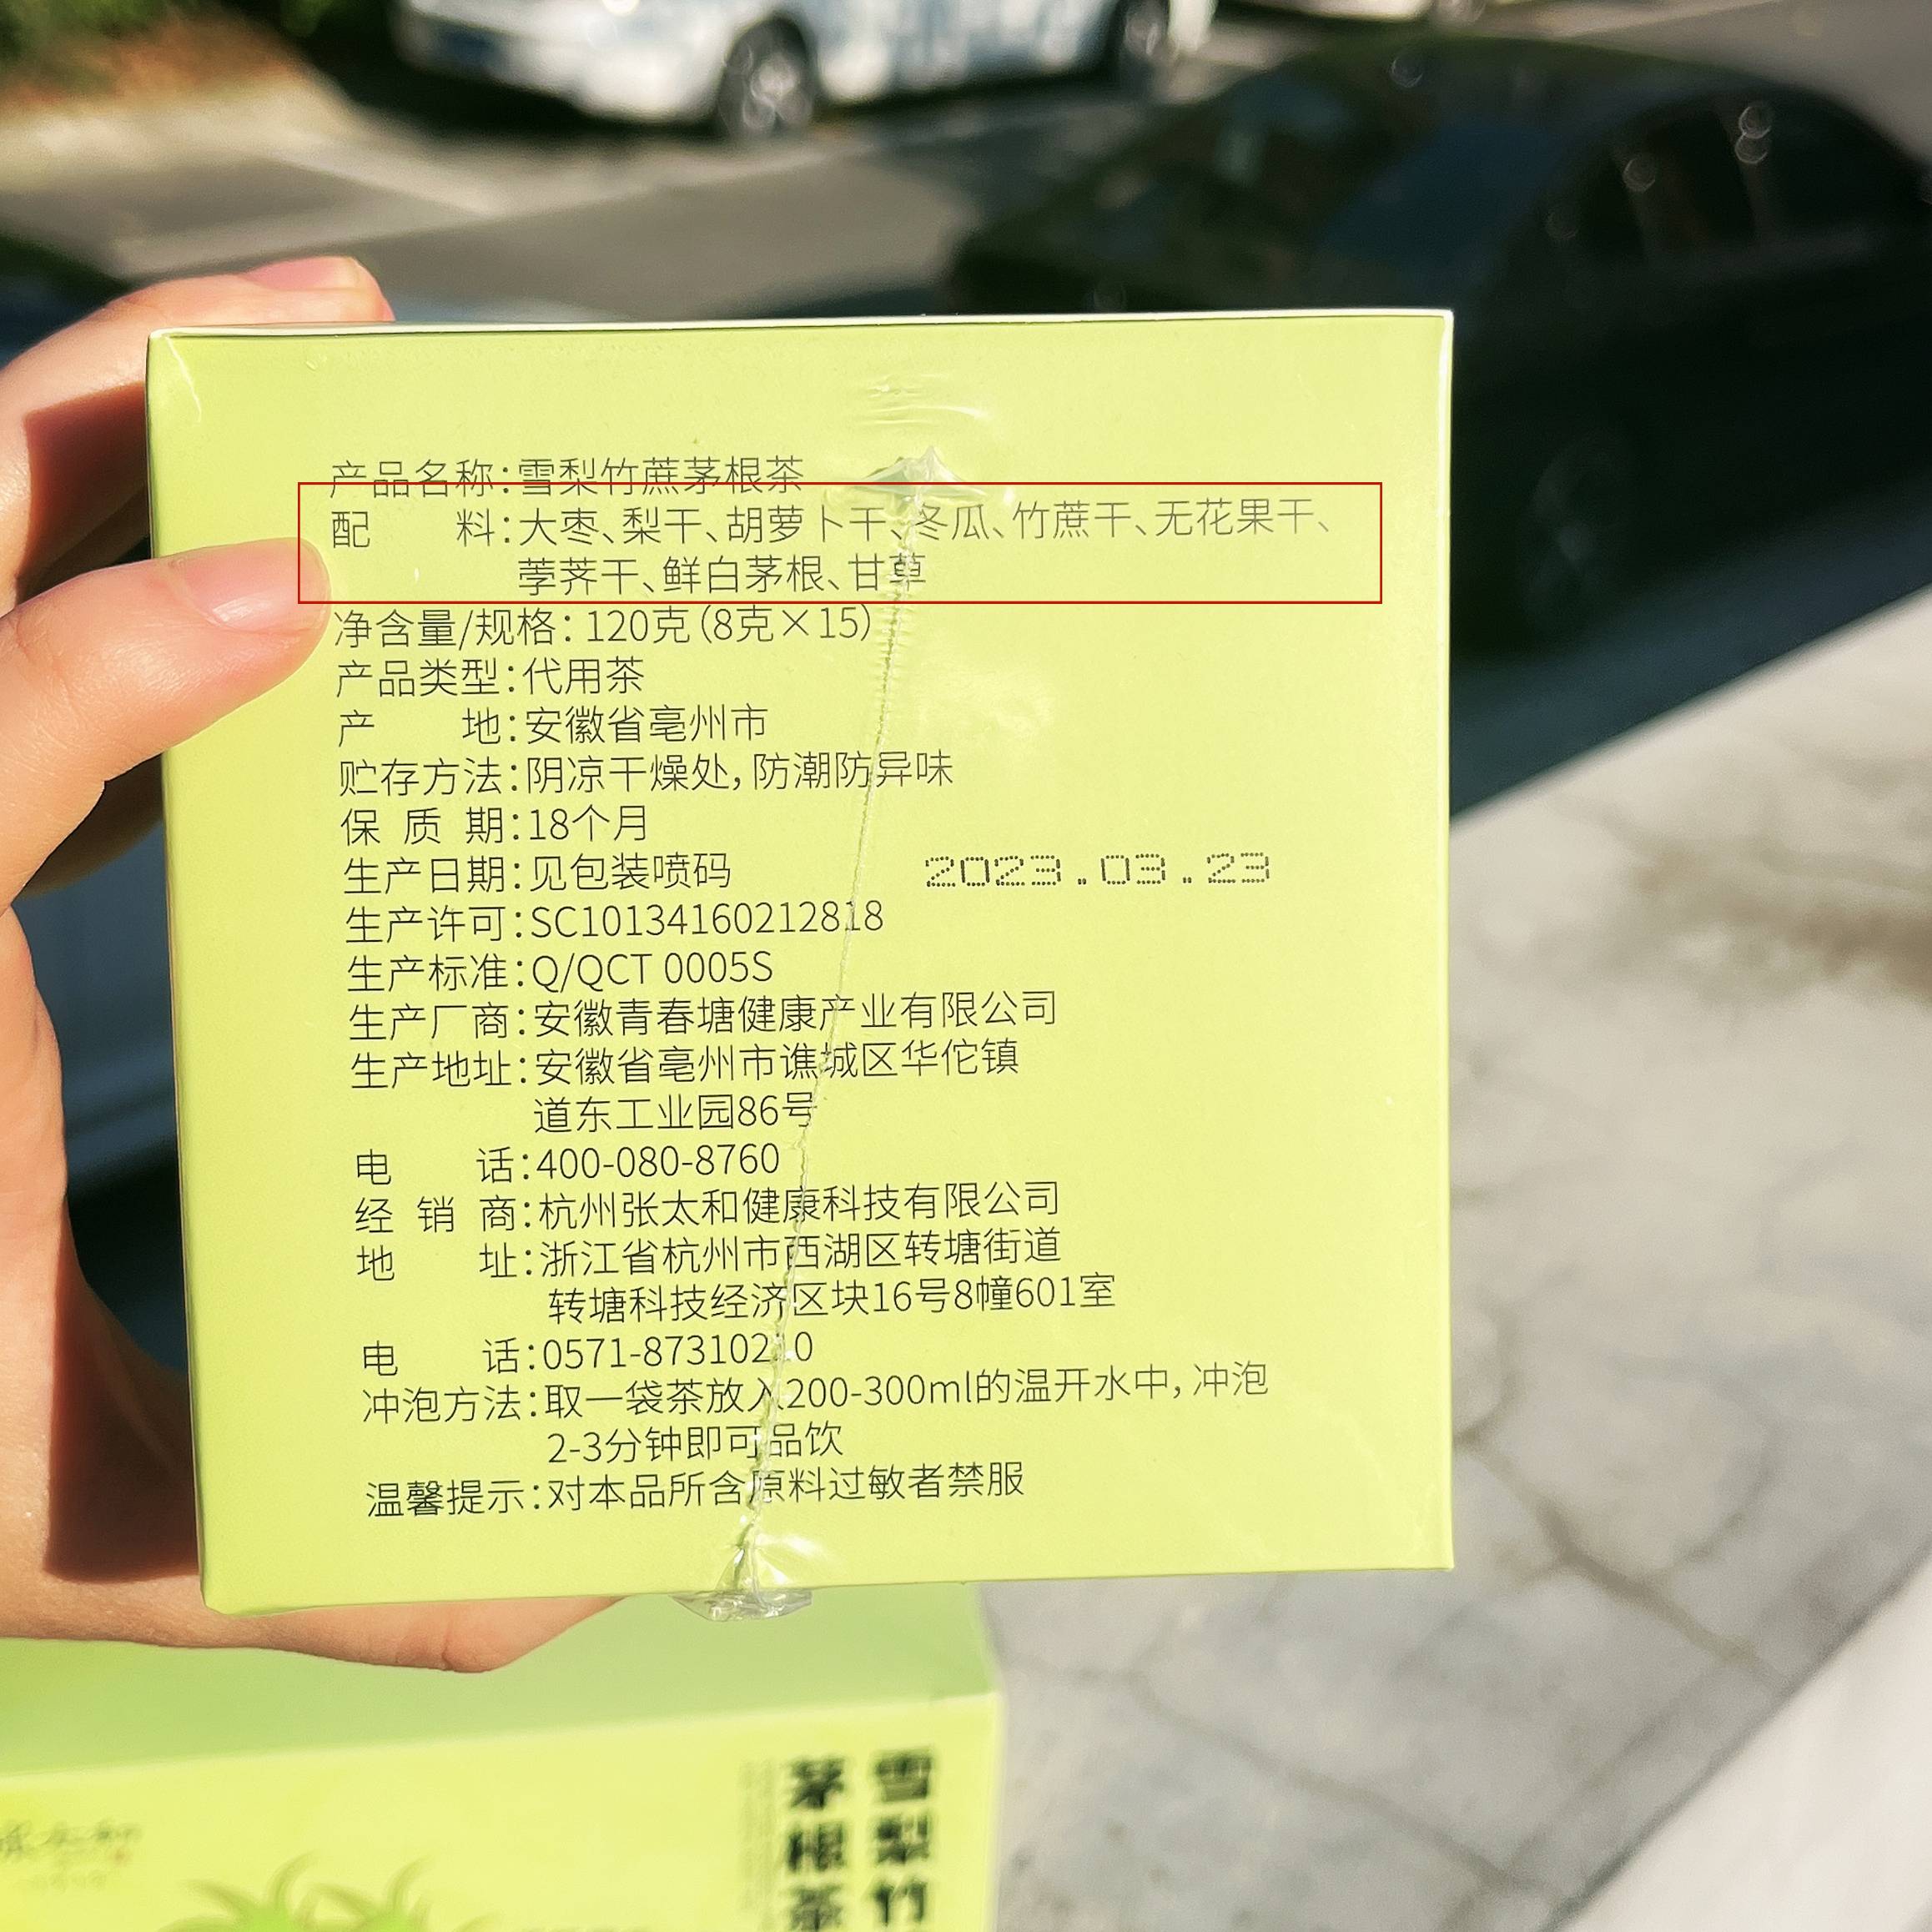 产品名称：雪梨竹蔗茅根茶
配料：大枣、梨干、胡萝卜干、冬瓜、竹蔗干、无花果干、
荸荠干、鲜白茅根、甘草
净含量/规格：120克（8克×15）
产品类型：代用茶
产地：安徽省亳州市
贮存方法：阴凉干燥处，防潮防异味
保质期：18个月
生产日期：见包装喷码 2023.03.23
生产许可：SC10134160212818
生产标准：Q/QCT 0005S
生产厂商：安徽青春塘健康产业有限公司
生产地址：安徽省亳州市谯城区华佗镇
道东工业园86号
电话：400-080-8760
经销商：杭州张太和健康科技有限公司
地址：浙江省杭州市西湖区转塘街道
转塘科技经济区块16号8幢601室
电话：
冲泡方法：取一袋茶放入200-300ml的温开水中，冲泡
2-3分钟即可品饮
温馨提示：对本品所含原料过敏者禁服
雪梨竹
茅根茶